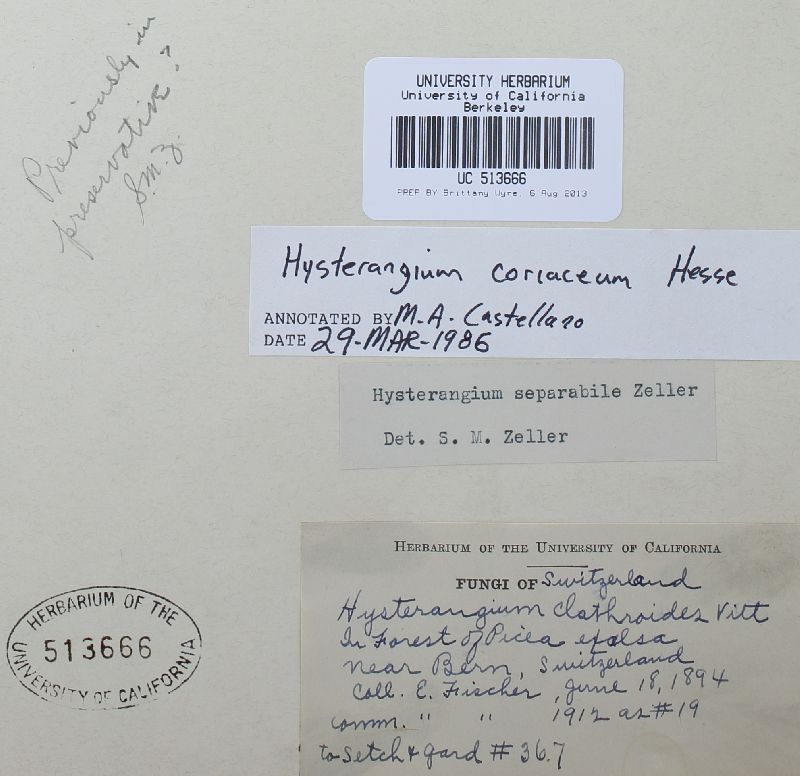 Previously in
preservative?
S.M.Z.
UNIVERSITY HERBARIUM
University of California
Berkeley
UC 513666
PREP BY Brittany Wyre, 6 Aug 2013
Hysterangium coriaceum Hesse
ANNOTATED BY M.A. Castellano
DATE 29-MAR-1986
Hysterangium separabile Zeller
Det. S. M. Zeller
HERBARIUM OF THE UNIVERSITY OF CALIFORNIA
FUNGI OF Switzerland
Hysterangium clathroides Vitt
In Forest of Picea exalsa
near Bern, Switzerland
Coll. E. Fischer, June 18, 1894
comm. " " 1912 as #19
to Setch & Gard # 367
HERBARIUM OF THE
513666
UNIVERSITY OF CALIFORNIA